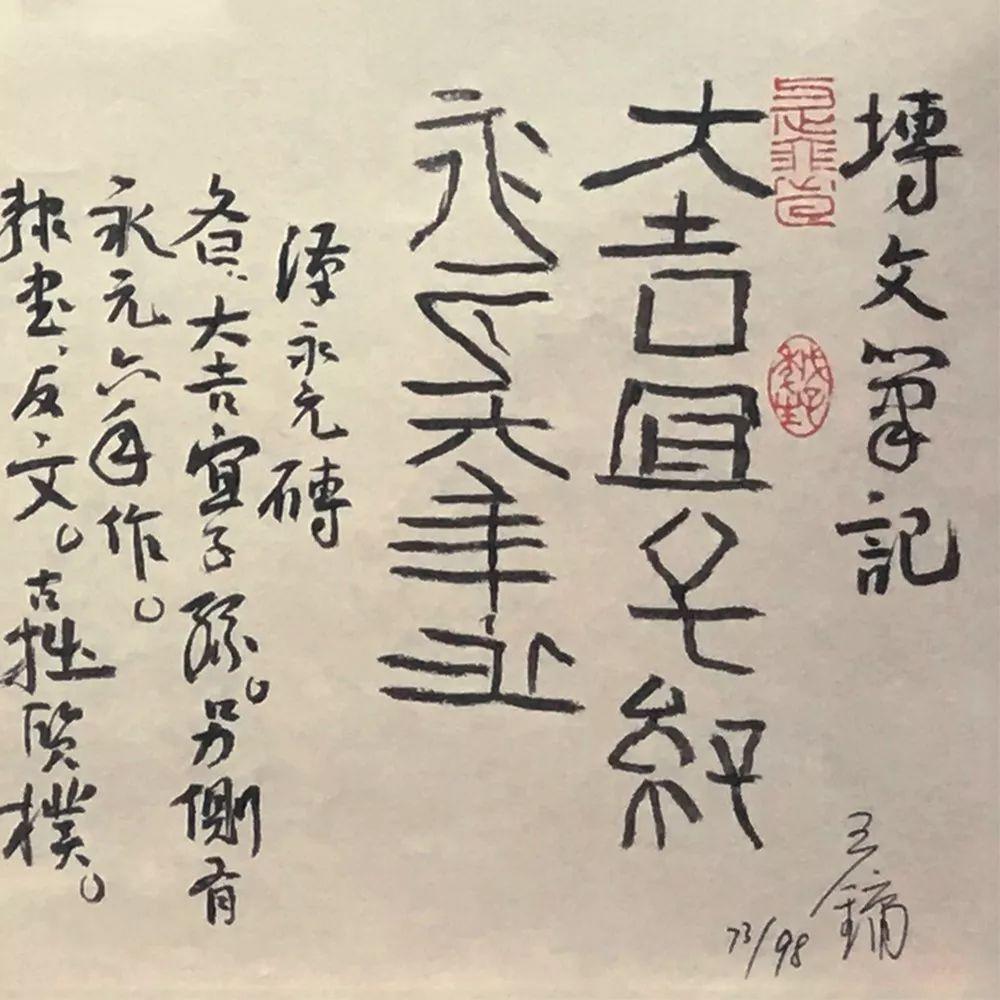 塼文筆記
大吉宜子孫
永元六年作
漢永元磚
曰、大吉宜子孫。另側有
永元六年作。
隸書、反文。古拙質樸。
王鏞
73/98